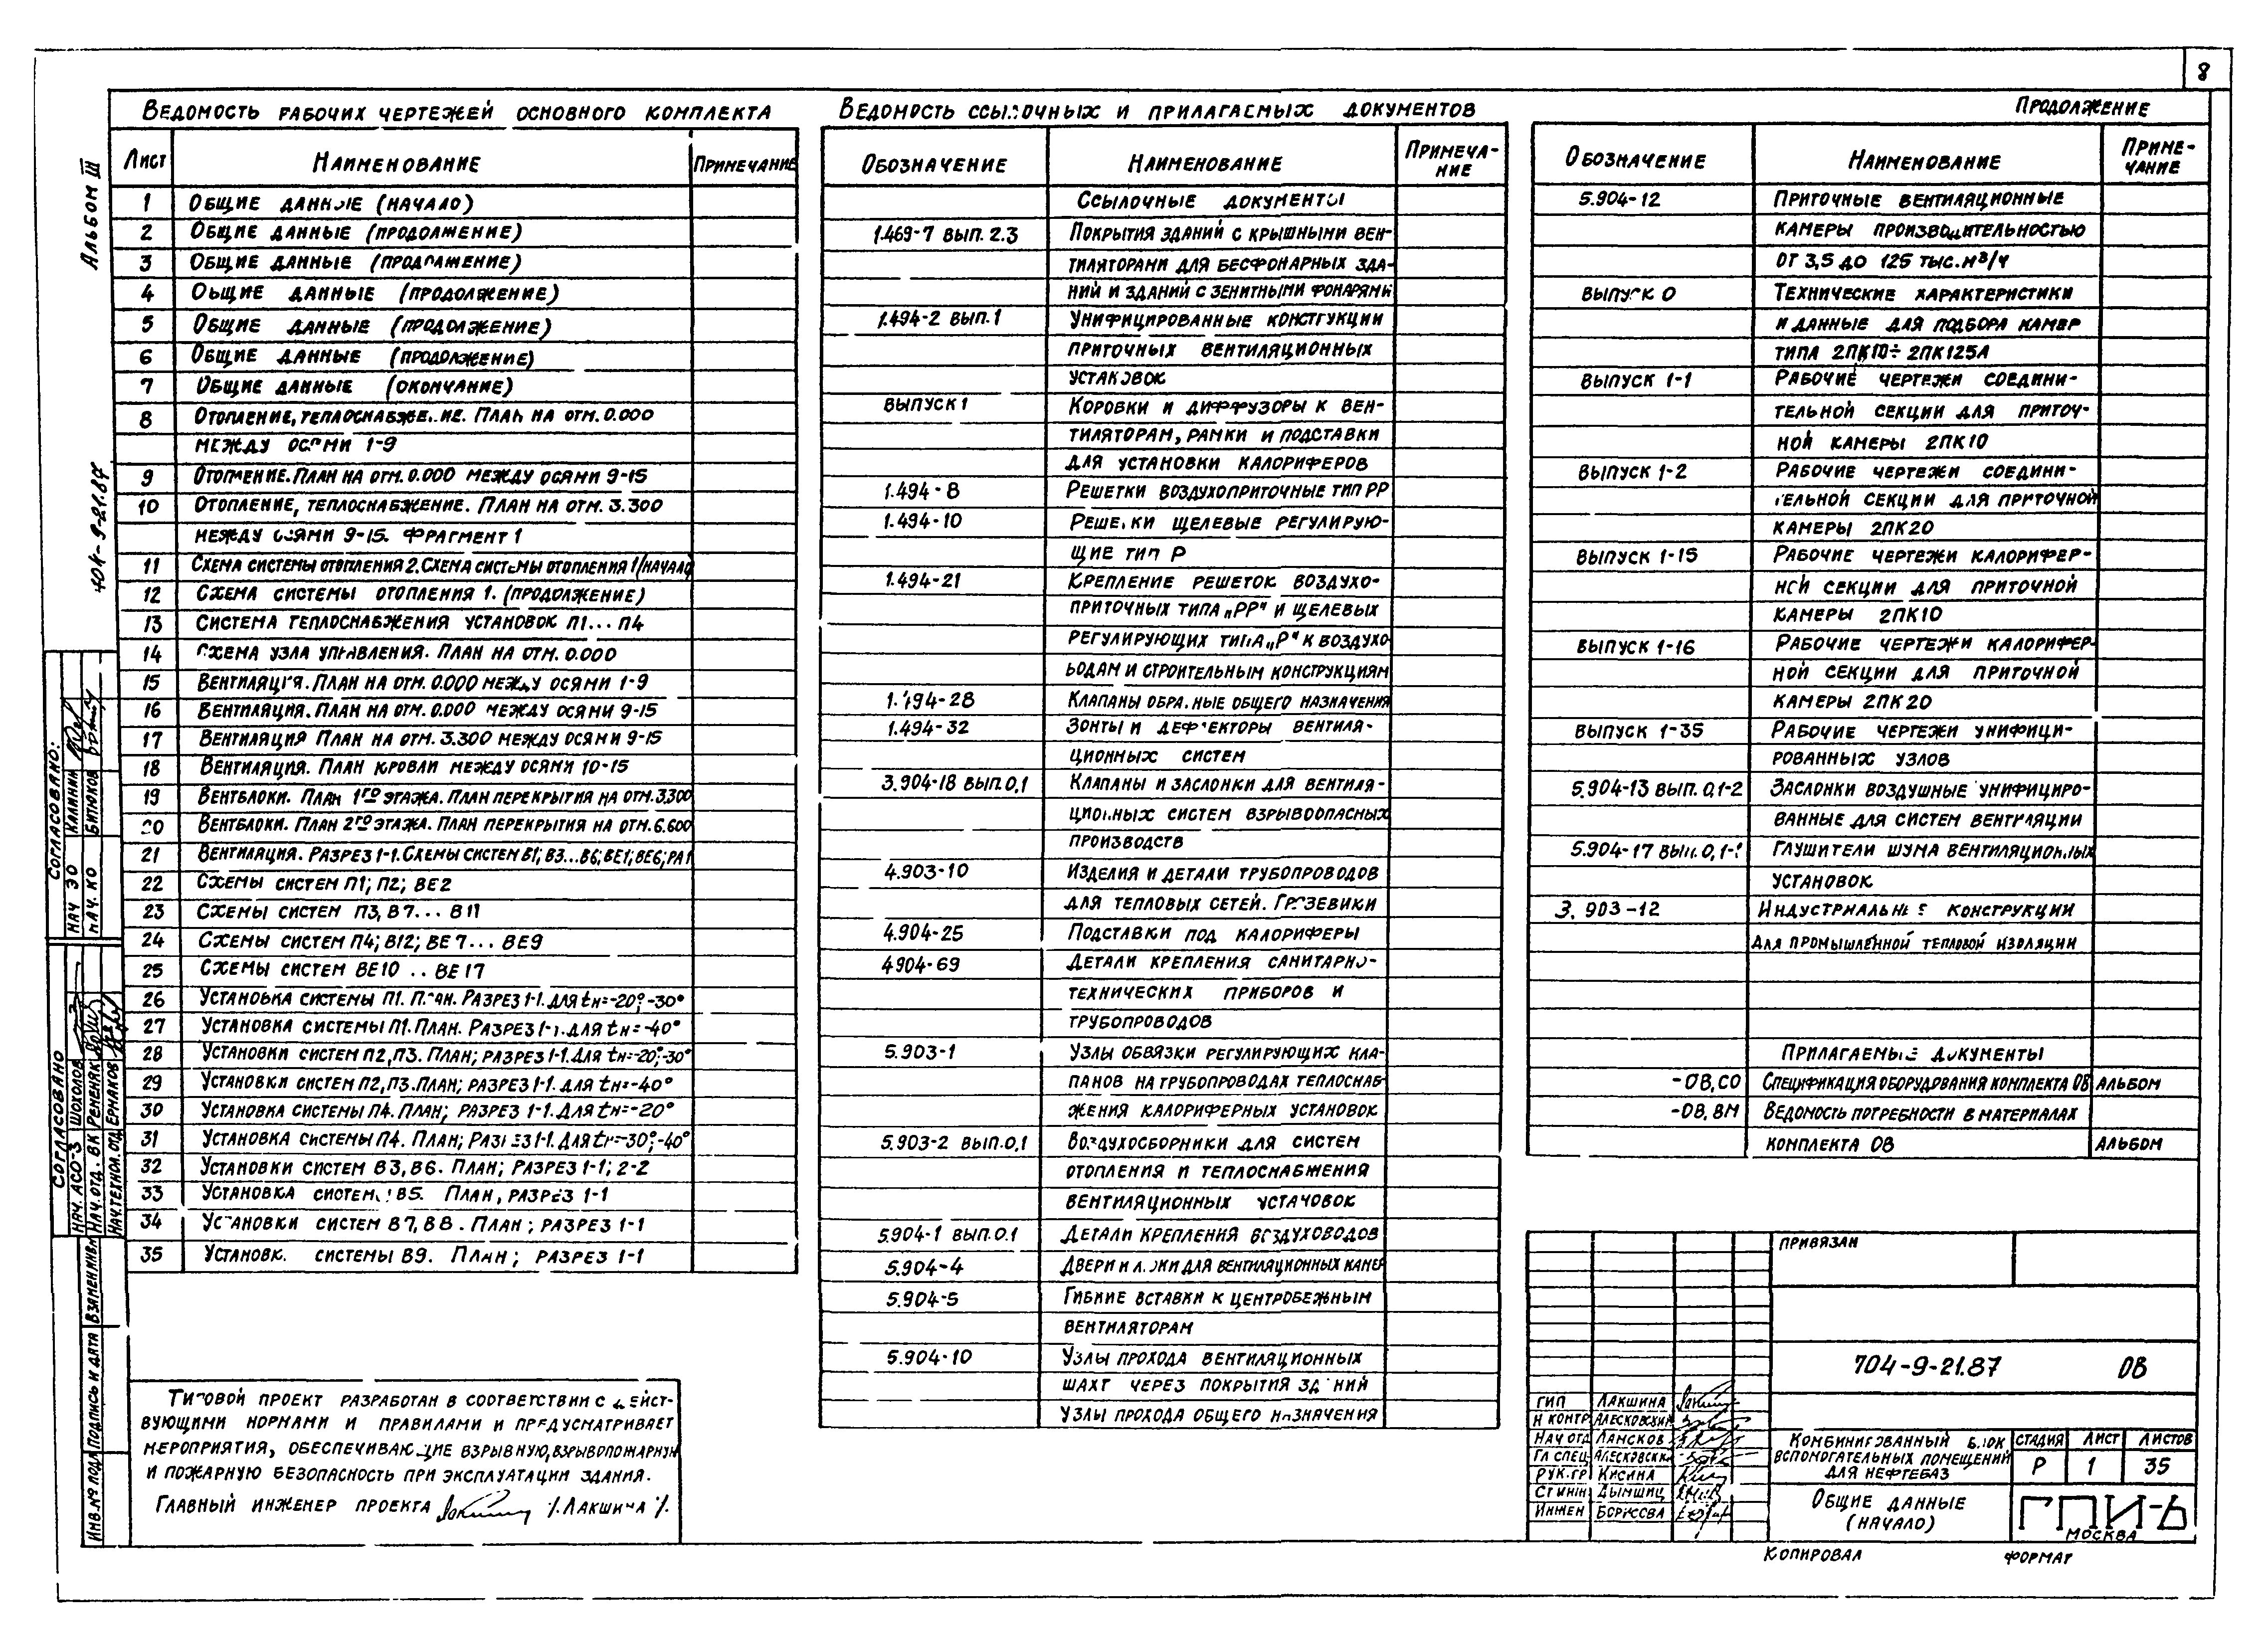 8
Альбом III
404-9-21.87
Ведомость рабочих чертежей основного комплекта
Лист Наименование Примечание
1 Общие данные (начало)
2 Общие данные (продолжение)
3 Общие данные (продолжение)
4 Общие данные (продолжение)
5 Общие данные (продолжение)
6 Общие данные (продолжение)
7 Общие данные (окончание)
8 Отопление, теплоснабжение. План на отм. 0.000
между осями 1-9
9 Отопление. План на отм. 0.000 между осями 9-15
10 Отопление, теплоснабжение. План на отм. 3.300
между осями 9-15. Фрагмент 1
11 Схема системы отопления 2. Схема системы отопления 1 (начало)
12 Схема системы отопления 1. (продолжение)
13 Система теплоснабжения установок П1... П4
14 Схема узла управления. План на отм. 0.000
15 Вентиляция. План на отм. 0.000 между осями 1-9
16 Вентиляция. План на отм. 0.000 между осями 9-15
17 Вентиляция План на отм. 3.300 между осями 9-15
18 Вентиляция. План кровли между осями 10-15
19 Вентблоки. План 1го этажа. План перекрытия на отм. 3.300
20 Вентблоки. План 2го этажа. План перекрытия на отм. 6.600
21 Вентиляция. Разрез 1-1. Схемы систем В1; В3...В6; ВЕ1; ВЕ6; РА1
22 Схемы систем П1; П2; ВЕ2
23 Схемы систем П3, В7... В11
24 Схемы систем П4; В12; ВЕ7... ВЕ9
25 Схемы систем ВЕ10 .. ВЕ17
26 Установка системы П1. План. Разрез 1-1. Для tн=-20°; -30°
27 Установка системы П1. План. Разрез 1-1. Для tн=-40°
28 Установки систем П2, П3. План; разрез 1-1. Для tн=-20°; -30°
29 Установки систем П2, П3. План; разрез 1-1. Для tн=-40°
30 Установка системы П4. План; разрез 1-1. Для tн=-20°
31 Установка системы П4. План; разрез 1-1. Для tн=-30°; -40°
32 Установки систем В3, В6. План; разрез 1-1; 2-2
33 Установка систем В5. План, разрез 1-1
34 Установки систем В7, В8. План; разрез 1-1
35 Установк. системы В9. План; разрез 1-1
Типовой проект разработан в соответствии с дейст-
вующими нормами и правилами и предусматривает
мероприятия, обеспечивающие взрывную, взрывопожарную
и пожарную безопасность при эксплуатации здания.
Главный инженер проекта /.Лакшина /.
Ведомость ссылочных и прилагаемых документов
Обозначение Наименование Примеча-
ние
Ссылочные документы
1.469-7 вып. 2.3 Покрытия зданий с крышными вен-
тиляторами для бесфонарных зда-
ний и зданий с зенитными фонарями
1.494-2 вып. 1 Унифицированные констгукции
приточных вентиляционных
установок
выпуск 1 Коробки и диффузоры к вен-
тиляторам, рамки и подставки
для установки калориферов
1.494-8 Решетки воздухоприточные тип РР
1.494-10 Решетки щелевые регулирую-
щие тип Р
1.494-21 Крепление решеток воздухо-
приточных типа „РР" и щелевых
регулирующих типа „Р" к воздухо-
водам и строительным конструкциям
1.494-28 Клапаны обратные общего назначения
1.494-32 Зонты и дефлекторы вентиля-
ционных систем
3.904-18 вып. 0,1 Клапаны и заслонки для вентиля-
ционных систем взрывоопасных
производств
4.903-10 Изделия и детали трубопроводов
для тепловых сетей. Грязевики
4.904-25 Подставки под калориферы
4904-69 Детали крепления санитарно-
технических приборов и
трубопроводов
5.903-1 Узлы обвязки регулирующих кла-
панов на трубопроводах теплоснаб-
жения калориферных установок
5.903-2 вып.0,1 Воздухосборники для систем
отопления и теплоснабжения
вентиляционных установок
5.904-1 вып.0.1 Детали крепления воздуховодов
5.904-4 Двери и люки для вентиляционных камер
5.904-5 Гибкие вставки к центробежным
вентиляторам
5.904-10 Узлы прохода вентиляционных
шахт через покрытия зданий
Узлы прохода общего назначения
Продолжение
Обозначение Наименование Приме-
чание
5.904-12 Приточные вентиляционные
камеры производительностью
от 3,5 до 125 тыс.м³/ч
выпуск 0 Технические характеристики
и данные для подбора камер
типа 2ПК10÷2ПК125А
выпуск 1-1 Рабочие чертежи соедини-
тельной секции для приточ-
ной камеры 2ПК10
выпуск 1-2 Рабочие чертежи соедини-
тельной секции для приточной
камеры 2ПК20
выпуск 1-15 Рабочие чертежи калорифер-
ной секции для приточной
камеры 2ПК10
выпуск 1-16 Рабочие чертежи калорифер-
ной секции для приточной
камеры 2ПК20
выпуск 1-35 Рабочие чертежи унифици-
рованных узлов
5.904-13 вып. 0,1-2 Заслонки воздушные унифициро-
ванные для систем вентиляции
5.904-17 вып. 0, Глушители шума вентиляционных
установок
3.903-12 Индустриальные конструкции
для промышленной тепловой изоляции
Прилагаемые документы
-ОВ.СО Спецификация оборудования комплекта ОВ альбом
-ОВ.ВМ Ведомость потребности в материалах
комплекта ОВ альбом
Привязан
704-9-21.87 ОВ
ГИП Лакшина
Н контр Алесковский
Нач отд Ламсков
Гл спец Алесковский
Рук.гр Кисина
Ст инж Дымшиц
Инжен Борисова
Комбинированный блок
вспомогательных помещений
для нефтебаз
Стадия Лист Листов
Р 1 35
Общие данные
(начало)
ГПИ-6
Москва
Копировал Формат
Согласовано:
Нач ЭО Калинин
Нач. КО Битюков
Согласовано
Нач. АСО-3 Шохолов
Нач. отд. ВК Ременяк
Нач. технол. отд Ермаков
Взамен инв №
Подпись и дата
Инв. № подл